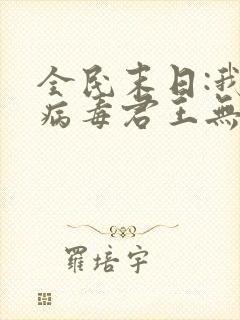 全民末日:我
病毒君王無
羅培宇